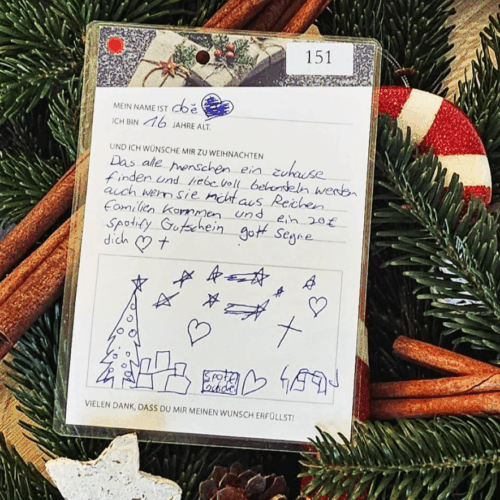 151
MEIN NAME IST doé
ICH BIN 16 JAHRE ALT.
UND ICH WÜNSCHE MIR ZU WEIHNACHTEN
Das alle menschen ein zuhause
finden und liebevoll behandeln werden
auch wenn sie nicht aus Reichen
Familien kommen und ein 20€
Spotify Gutschein gott Segne
dich
VIELEN DANK, DASS DU MIR MEINEN WUNSCH ERFÜLLST!